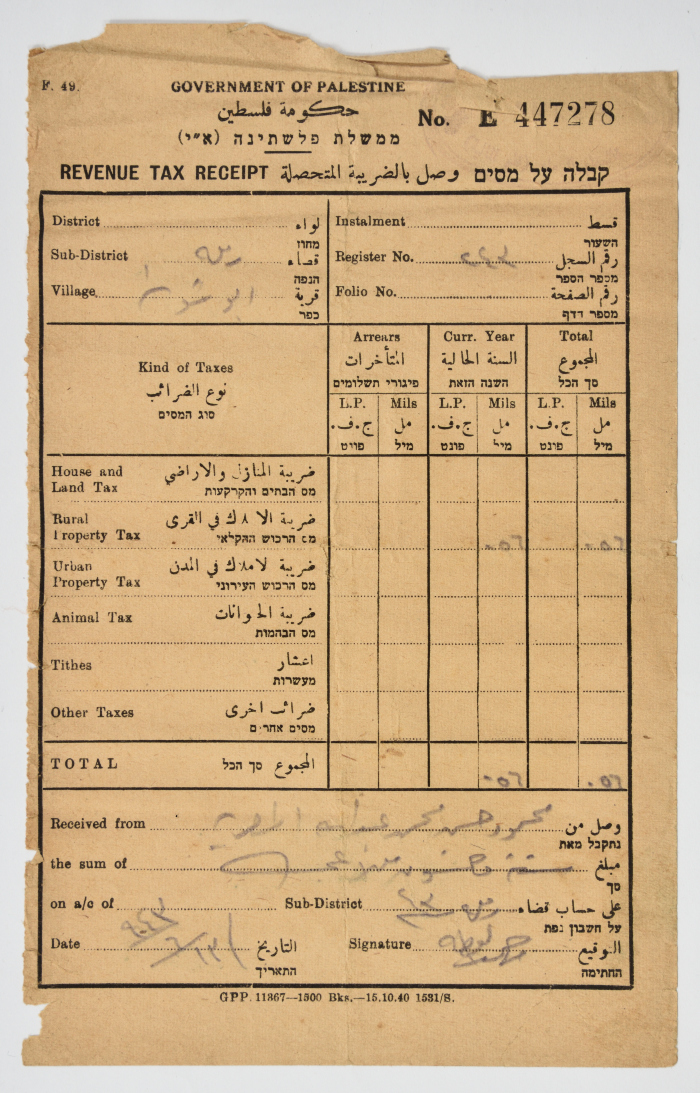 F. 49.
GOVERNMENT OF PALESTINE
حكومة فلسطين
No. E 447278
ממשלת פלשתינה (א״י)
REVENUE TAX RECEIPT وصل بالضريبة المتحصلة קבלה על מסים
District لواء
מחוז
Sub-District رملة قضاء
הנפה
Village ابو شوشة قرية
כפר
Instalment قسط
השעור
Register No. رقم السجل
מספר הספר
Folio No. رقم الصفحة
מספר הדף
Kind of Taxes
نوع الضرائب
סוג המסים
Arrears Curr. Year Total
المتأخرات السنة الحالية المجموع
פיגורי תשלומים השנה הזאת סך הכל
L.P. Mils L.P. Mils L.P. Mils
ج.ف. مل ج.ف. مل ج.ف. مل
פונט מיל פונט מיל פונט מיל
House and ضريبة المنازل والاراضي
Land Tax מס הבתים והקרקעות
Rural ضريبة الاملاك في القرى
Property Tax מס הרכוש החקלאי ٠٥٦ ٠٥٦
Urban ضريبة لاملاك في المدن
Property Tax מס הרכוש העירוני
Animal Tax ضريبة الحيوانات
מס הבהמות
Tithes اعشار
מעשרות
Other Taxes ضرائب اخرى
מסים אחרים
TOTAL סך הכל المجموع ٠٥٦ ٠٥٦
Received from محمود حسن محمد عبدالله وصل من
נתקבל מאת
the sum of مبلغ
סך
on a/c of Sub-District رملة على حساب قضاء
על חשבון נפת
Date التاريخ
התאריך
Signature التوقيع
החתימה
GPP. 11367—1500 Bks.—15.10.40 1531/S.